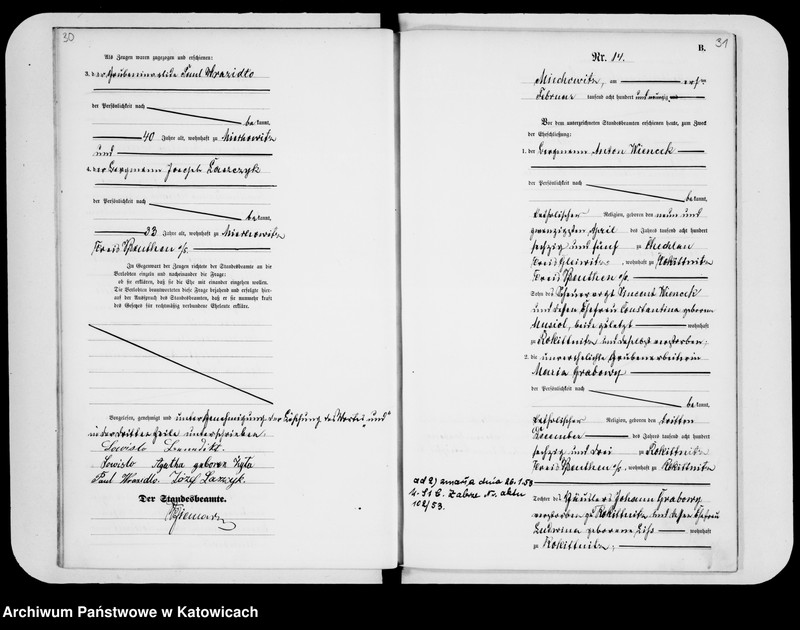 30
Als Zeugen waren zugezogen und erschienen:
3. der Grubeninvalide Paul Wrazidlo
der Persönlichkeit nach
be kannt,
40 Jahre alt, wohnhaft zu Miechowitz
und
4. der Bergmann Joseph Laszczyk
der Persönlichkeit nach
be kannt,
33 Jahre alt, wohnhaft zu Miechowitz
Kreis Beuthen o/s.
In Gegenwart der Zeugen richtete der Standesbeamte an die
Verlobten einzeln und nacheinander die Frage:
ob sie erklären, daß sie die Ehe mit einander eingehen wollen.
Die Verlobten beantworteten diese Frage bejahend und erfolgte hier-
auf der Ausspruch des Standesbeamten, daß er sie nunmehr kraft
des Gesetzes für rechtmäßig verbundene Eheleute erkläre.
Vorgelesen, genehmigt und unter Genehmigung der Löschung des Wortes „und“
in der dritten Zeile unterschrieben.
Lowisko Benedikt.
Lowisko Agatha geborene Zyla
Paul Wrazidlo. Józef Laszczyk.
Der Standesbeamte.
31
B.
Nr. 14.
Miechowitz, am ersten
Februar tausend acht hundert und neunzig
Vor dem unterzeichneten Standesbeamten erschienen heute, zum Zweck
der Eheschließung:
1. der Bergmann Anton Wiencek
der Persönlichkeit nach
be kannt,
katholischer Religion, geboren den neun und
zwanzigsten April des Jahres tausend acht hundert
sechzig und fünf zu Chechlau
Kreis Gleiwitz, wohnhaft zu Rokittnitz
Kreis Beuthen o/s
Sohn des Vincent Wiencek
und dessen Ehefrau Constantina geborene
Musiol, beide zuletzt wohnhaft
zu Rokittnitz und daselbst verstorben,
2. die unverehelichte Grubenarbeiterin
Maria Grabowy
der Persönlichkeit nach
be kannt,
katholischer Religion, geboren den dritten
Dezember des Jahres tausend acht hundert
sechzig und drei zu Rokittnitz
Kreis Beuthen o/s, wohnhaft zu Rokittnitz
ad 2) zmarła dnia 26.1.53
U.S.C. Zabrze Nr. aktu
102/53.
Tochter des Häuslers Johann Grabowy
verstorben zu Rokittnitz und dessen Ehefrau
Ludwina geborene wohnhaft
zu Rokittnitz,
Archiwum Państwowe w Katowicach